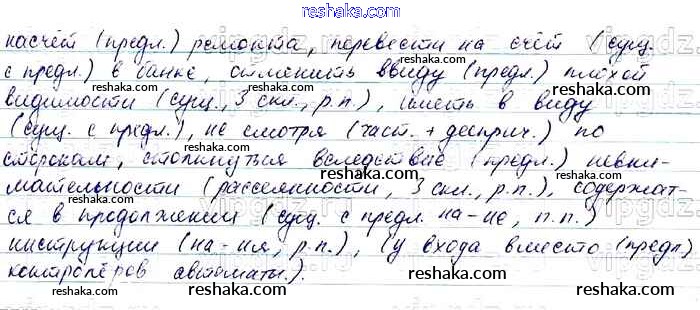 reshaka.com
насчёт (предл.) ремонта, перевести на счёт (сущ.
с предл.) в банке, отменить ввиду (предл.) плохой
видимости (сущ., 3 скл., р.п.), иметь в виду
(сущ. с предл.), не смотря (част. + дееприч.) по
сторокам, столкнуться вследствие (предл.) невни-
мательности (рассеянности, 3 скл., р.п.), содержат-
ся в продолжении (сущ. с предл. на -ие, п.п.)
инструкции (на -ия, р.п.), (у входа вместо (предл.)
контролёров автоматы.).